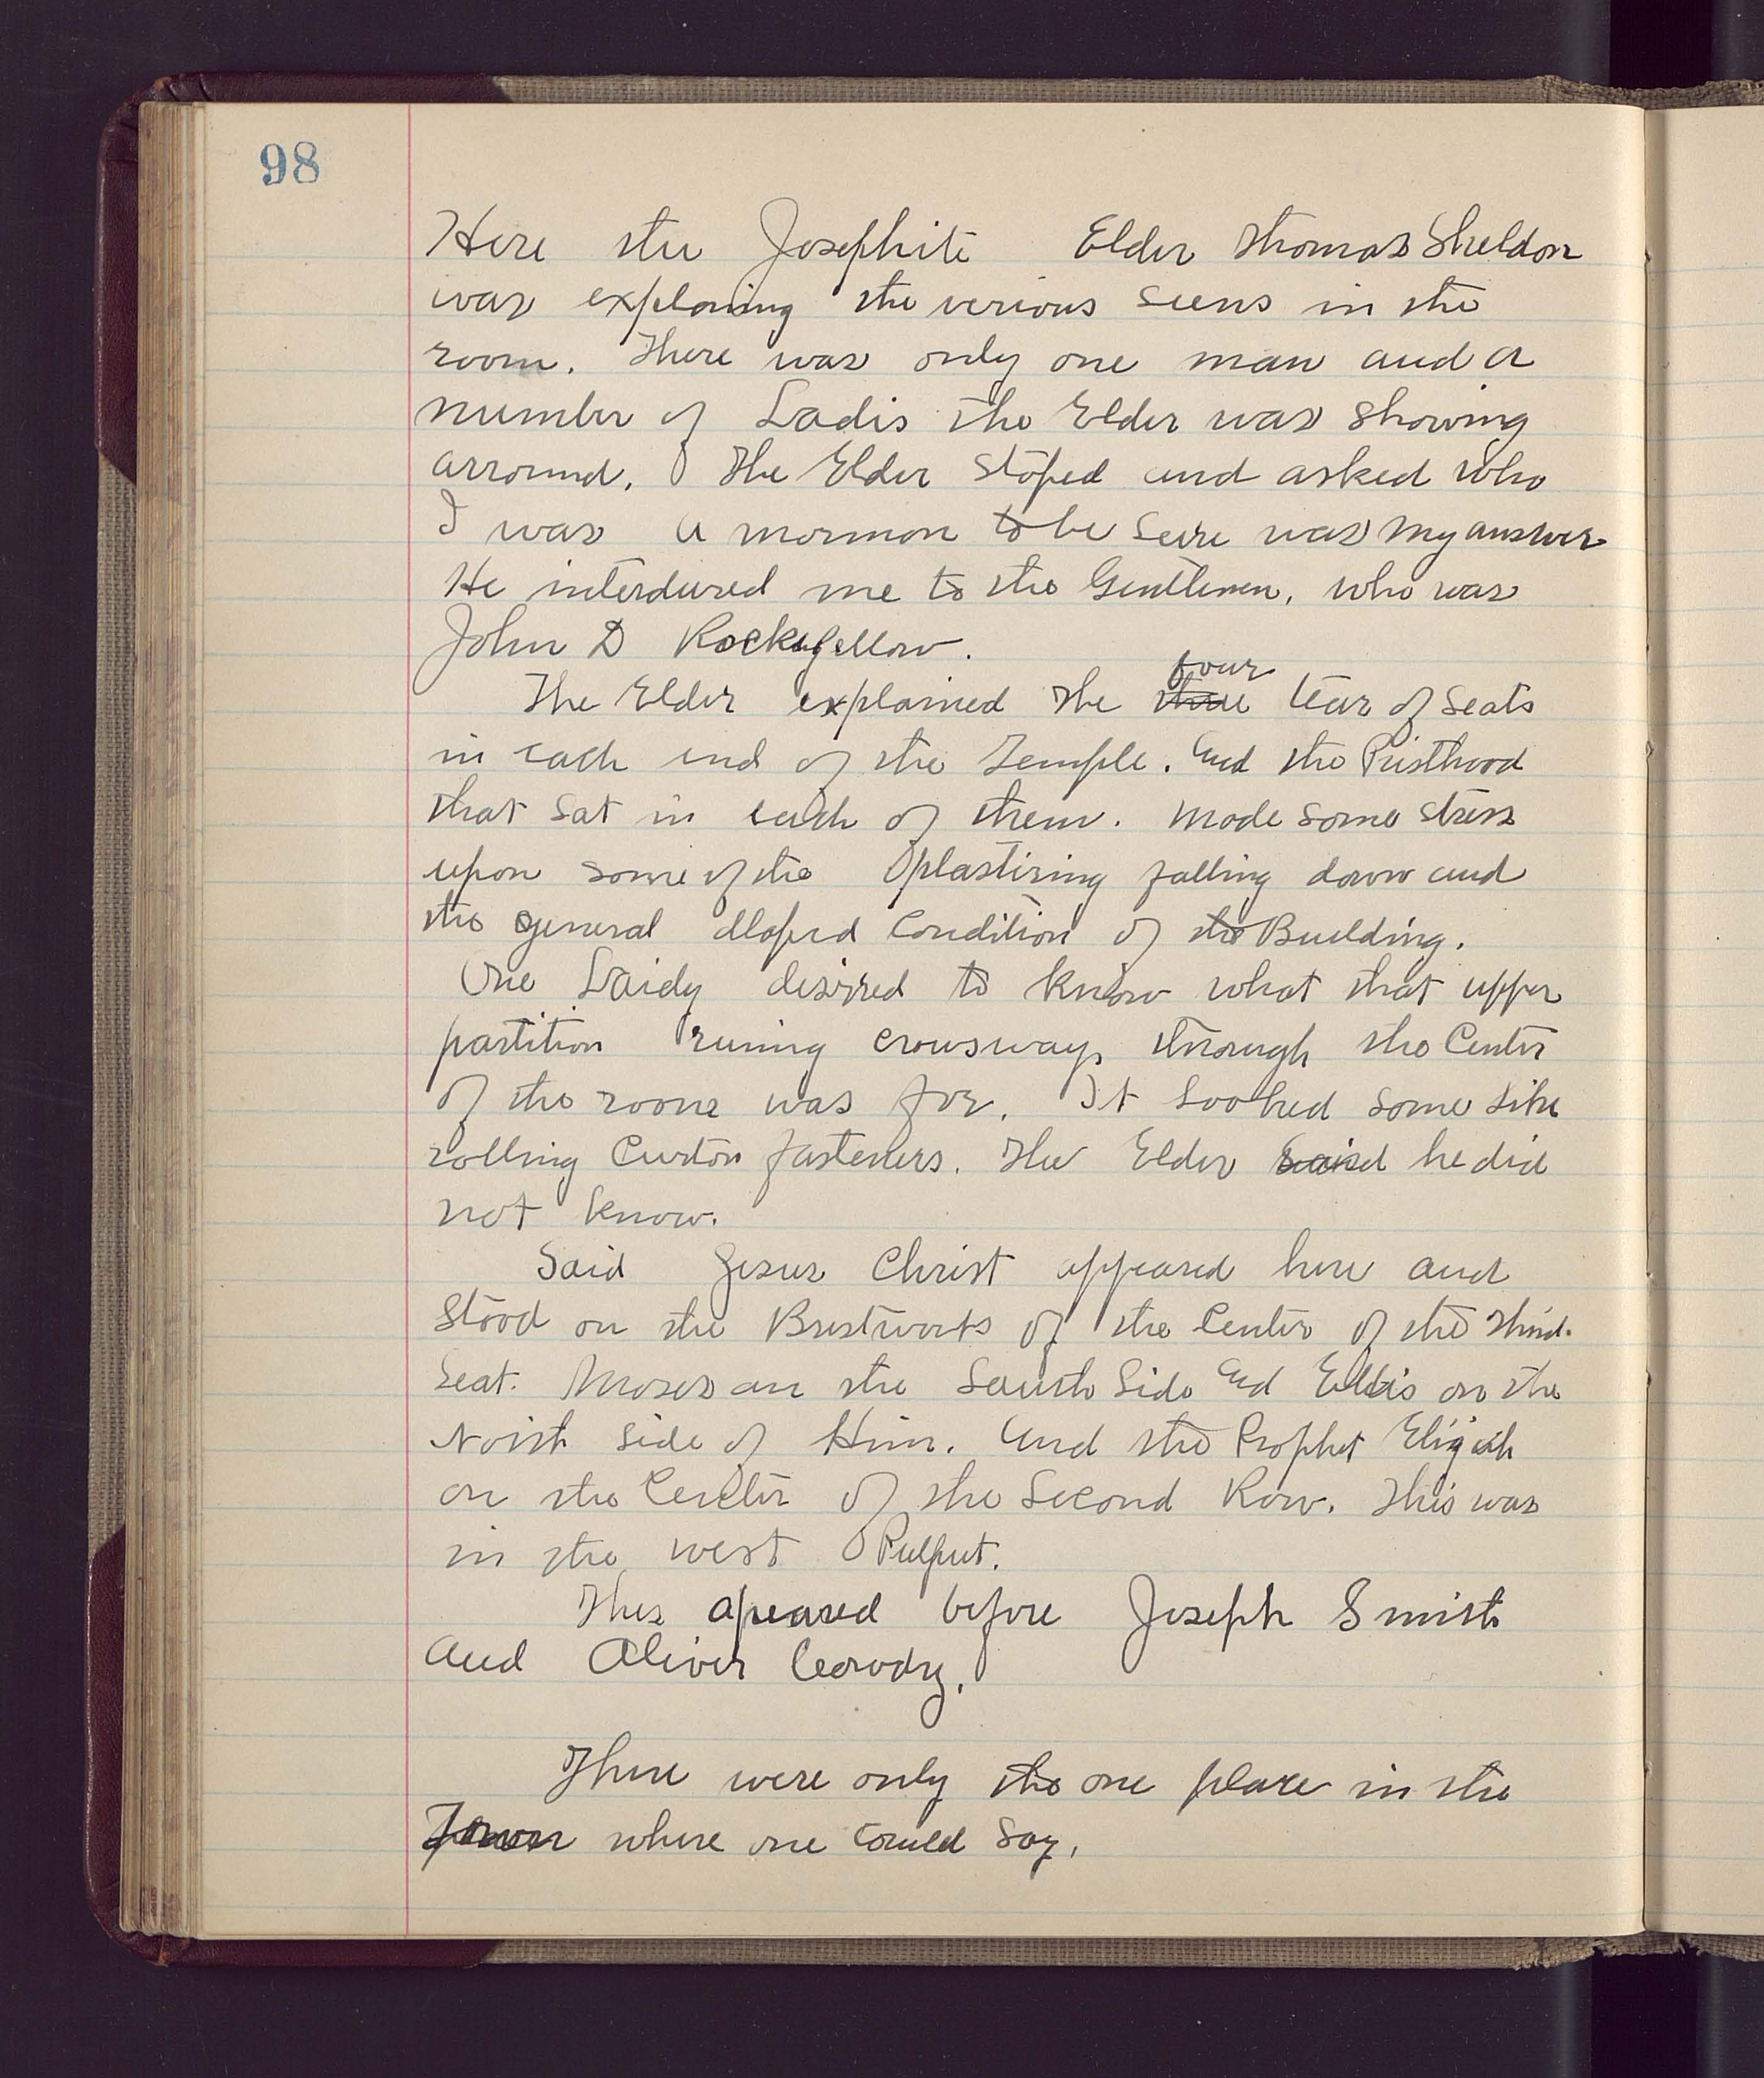 98
Here the Josephite Elder Thomas Sheldon
was explaning the verious seens in the
room. There was only one man and a
number of Ladis the Elder was showing
arround. The Elder stoped and asked who
I was A mormon to be seure was my answer
He interduced me to the Gentlemen, who was
John D Rockefellow.
four
The Elder explained the three tear of seats
in each end of the Temple. And the Pristhood
that sat in each of them. Made some stress
upon some of the plastiring falling down and
the general dlapied Condition of the Building.
One Laidy desirred to know what that upper
partition runing crousways through the Center
of the room was for. It looked some like
rolling Curton fasteners. The Elder said he did
not know.
Said Jesus Christ appeared here and
stood on the Brestworks of the Center of the third
seat. Moses on the South Side And Elias on the
North side of Him. And the Prophet Eligah
on the Center of the Second Row. This was
in the west Pulput.
Thes apeared before Joseph Smith
and Oliver Cowdry.
There were only the one place in the
Town where one could say,